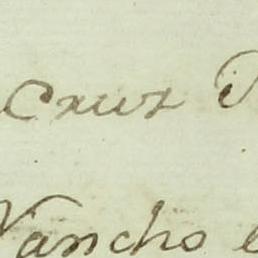 Cruz
Vancho